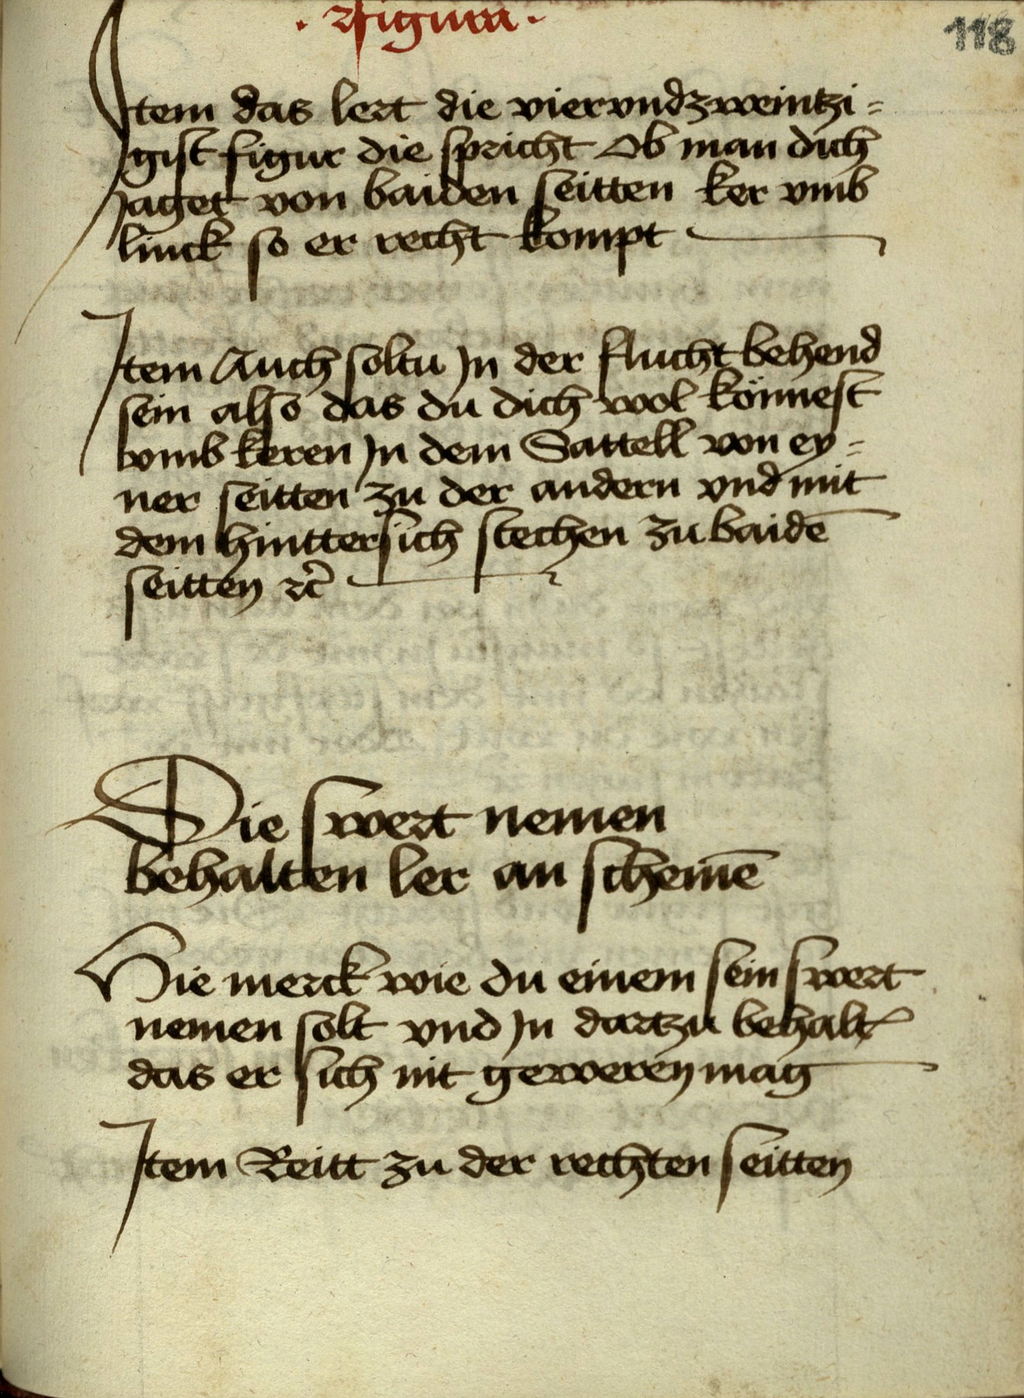 · Figura ·
118
Item das lert die viervndzweintzi=
gist figur die spricht Ob man dich
Jaget von baiden seitten ker vmb
linck so er recht kompt
Item Auch soltu Jn der flucht behend
sein also das du dich wol könnest
vmb keren Jn dem Sattell von ey=
ner seitten zu der andern vnd mit
dem hinttersich stechen zu baidē
seitten ⁊c̄
Die swert nemen
behalten ler an schemē
Hie merck wie du einem sein swert
nemen solt vnd Jn dartzu behalt
das er sich nit geweren mag
Item Reitt zu der rechten seitten